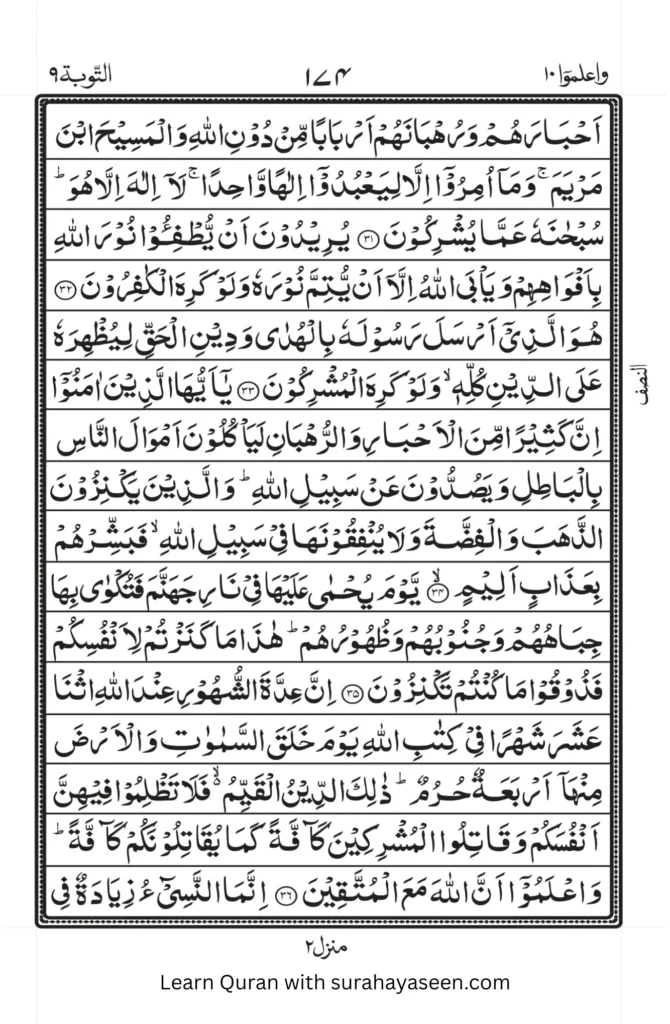 واعلموٓا ١٠ ١٧٤ التّوبة ٩
اَحۡبَارَهُمۡ وَرُهۡبَانَهُمۡ اَرۡبَابًا مِّنۡ دُوۡنِ اللّٰهِ وَالۡمَسِيۡحَ ابۡنَ
مَرۡيَمَ‌ ۚ وَمَاۤ اُمِرُوۡۤا اِلَّا لِيَعۡبُدُوۡۤا اِلٰهًا وَّاحِدًا‌ ۚ لَاۤ اِلٰهَ اِلَّا هُوَ‌ ؕ
سُبۡحٰنَهٗ عَمَّا يُشۡرِكُوۡنَ ۝٣١ يُرِيۡدُوۡنَ اَنۡ يُّطۡفِـُٔـوۡا نُوۡرَ اللّٰهِ
بِاَفۡوَاهِهِمۡ وَيَاۡبَى اللّٰهُ اِلَّاۤ اَنۡ يُّتِمَّ نُوۡرَهٗ وَلَوۡ كَرِهَ الۡكٰفِرُوۡنَ ۝٣٢
هُوَ الَّذِىۡۤ اَرۡسَلَ رَسُوۡلَهٗ بِالۡهُدٰى وَدِيۡنِ الۡحَـقِّ لِيُظۡهِرَهٗ
عَلَى الدِّيۡنِ كُلِّهٖۙ وَلَوۡ كَرِهَ الۡمُشۡرِكُوۡنَ ۝٣٣ يٰۤاَيُّهَا الَّذِيۡنَ اٰمَنُوۡۤا
النصف
اِنَّ كَثِيۡرًا مِّنَ الۡاَحۡبَارِ وَالرُّهۡبَانِ لَيَاۡكُلُوۡنَ اَمۡوَالَ النَّاسِ
بِالۡبَاطِلِ وَيَصُدُّوۡنَ عَنۡ سَبِيۡلِ اللّٰهِ‌ؕ وَالَّذِيۡنَ يَكۡنِزُوۡنَ
الذَّهَبَ وَالۡفِضَّةَ وَلَا يُنۡفِقُوۡنَهَا فِىۡ سَبِيۡلِ اللّٰهِۙ فَبَشِّرۡهُمۡ
بِعَذَابٍ اَلِيۡمٍۙ ۝٣٤ يَّوۡمَ يُحۡمٰى عَلَيۡهَا فِىۡ نَارِ جَهَـنَّمَ فَتُكۡوٰى بِهَا
جِبَاهُهُمۡ وَجُنُوۡبُهُمۡ وَظُهُوۡرُهُمۡ‌ؕ هٰذَا مَا كَنَزۡتُمۡ لِاَنۡفُسِكُمۡ
فَذُوۡقُوۡا مَا كُنۡتُمۡ تَكۡنِزُوۡنَ ۝٣٥ اِنَّ عِدَّةَ الشُّهُوۡرِ عِنۡدَ اللّٰهِ اثۡنَا
عَشَرَ شَهۡرًا فِىۡ كِتٰبِ اللّٰهِ يَوۡمَ خَلَقَ السَّمٰوٰتِ وَالۡاَرۡضَ
مِنۡهَاۤ اَرۡبَعَةٌ حُرُمٌ‌ؕ ذٰلِكَ الدِّيۡنُ الۡقَيِّمُۙ فَلَا تَظۡلِمُوۡا فِيۡهِنَّ
اَنۡفُسَكُمۡ وَقَاتِلُوا الۡمُشۡرِكِيۡنَ كَآفَّةً كَمَا يُقَاتِلُوۡنَكُمۡ كَآفَّةً‌ ؕ
وَاعۡلَمُوۡۤا اَنَّ اللّٰهَ مَعَ الۡمُتَّقِيۡنَ ۝٣٦ اِنَّمَا النَّسِىۡٓءُ زِيَادَةٌ فِى
منزل ٢
Learn Quran with surahayaseen.com